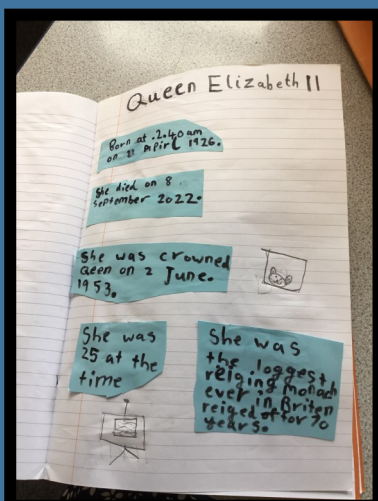 Queen Elizabeth II
Born at .2.40am
on 21 Apirl 1926.
She died on 8
september 2022.
She was crowned
Qeen on 2 June.
1953.
She was
25 at the
time
She was
the loggest
reloing monach
ever in Briten
reiged of for 70
years.